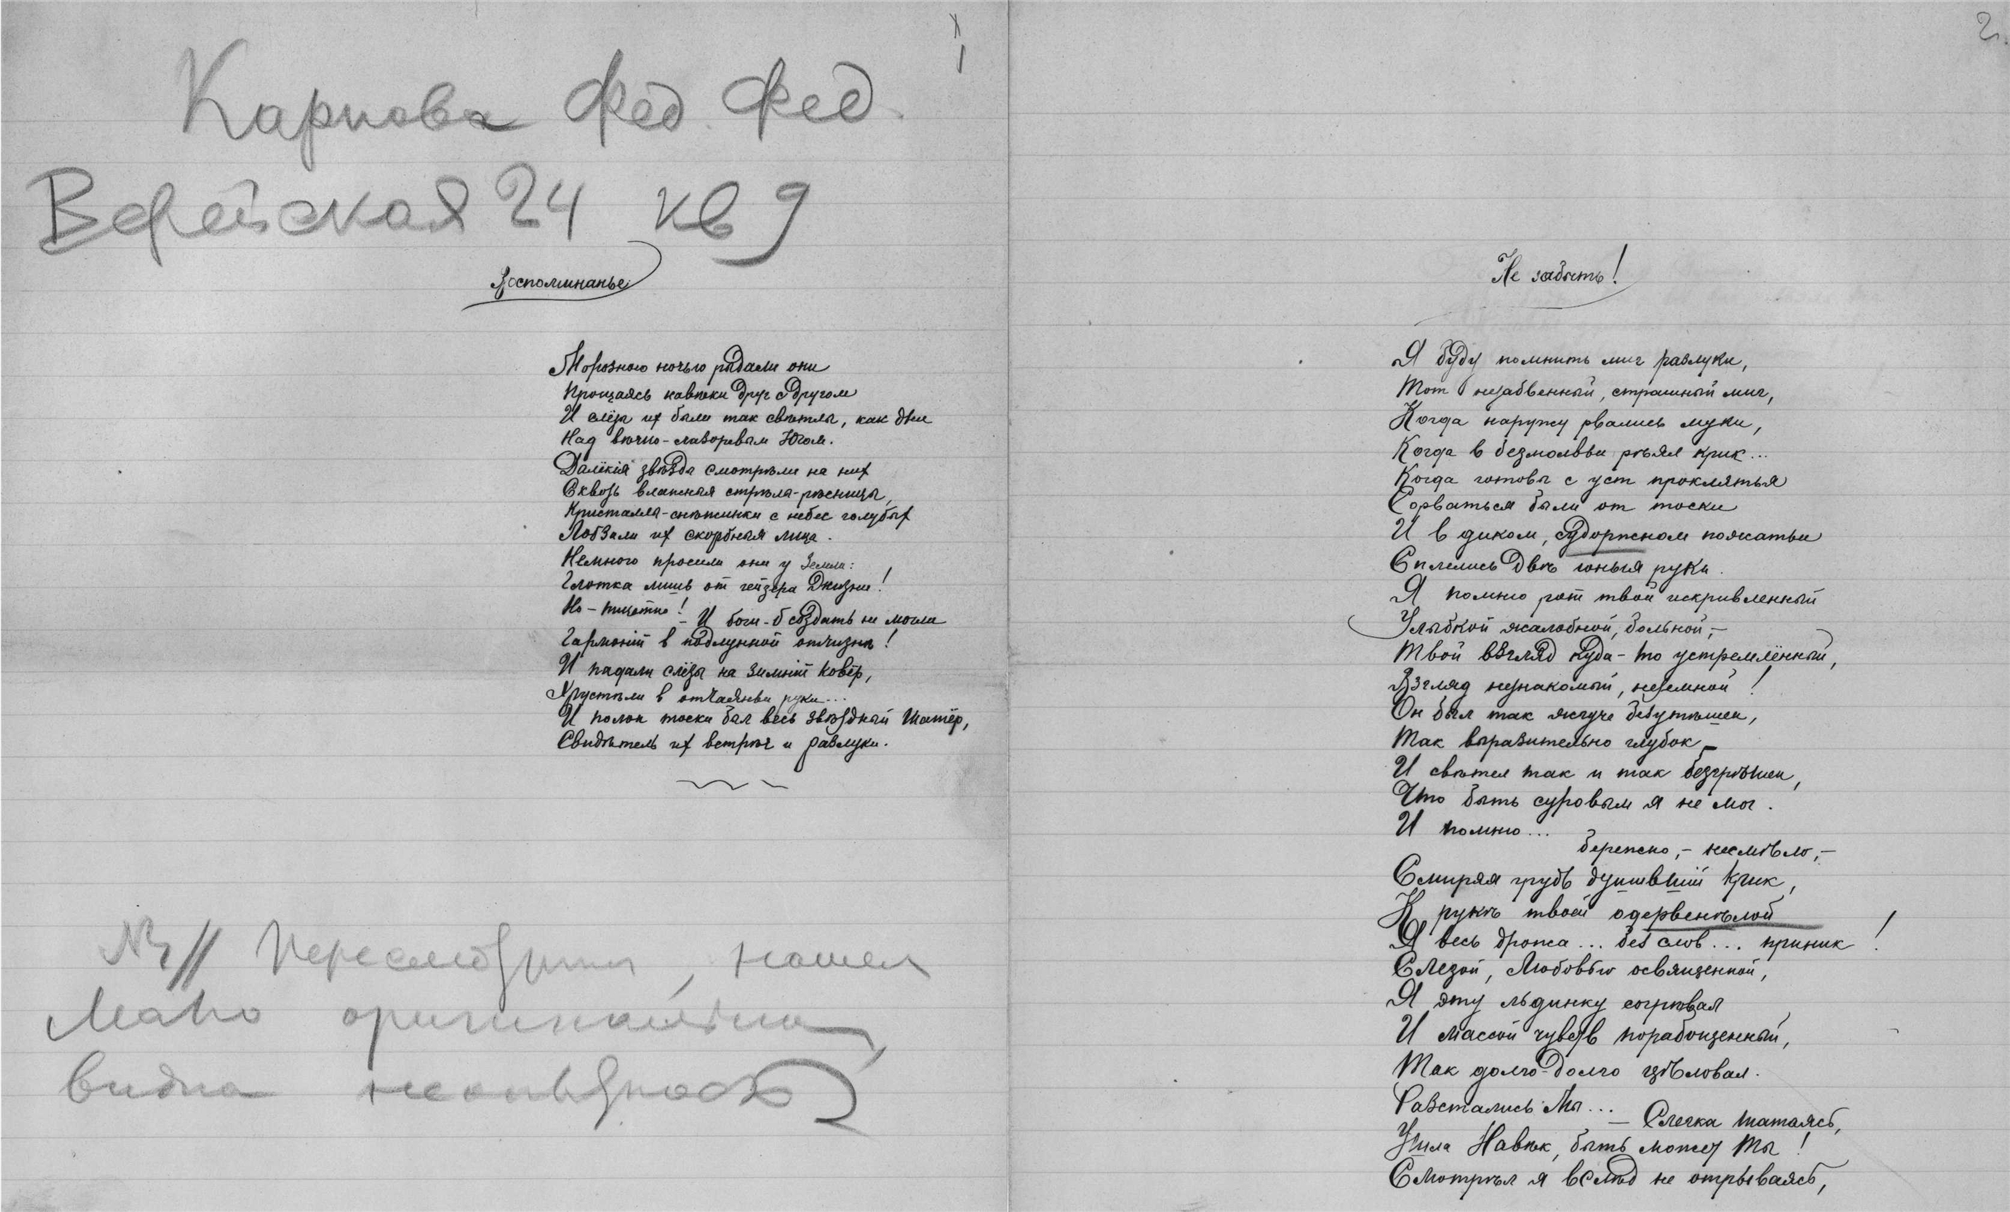 1
Карпова Фед. Фед.
Верейская 24 кв 9
Воспоминанье
Морозною ночью рыдали они
Прощаясь навѣки друг с другом
И слёзы их были так свѣтлы, как дни
Над вѣчно-лазоревым Югом.
Далёкія звѣзды смотрѣли на них
Сквозь влажныя стрѣлы-рѣсницы,
Кристаллы-снѣжинки с небес голубых
Лобзали их скорбныя лица.
Немного просили они у Земли:
Глотка лишь от гейзера Жизни!
Но – тщетно! – И боги-б создать не могли
Гармоній в подлунной отчизнѣ!
И падали слёзы на зимній ковёр,
Хрустѣли в отчаяньи руки...
И полон тоски был весь звѣздный шатёр,
Свидѣтель их встрѣч и разлуки.
мало оригинально,
видна неопытность
2.
Не забыть!
Я буду помнить миг разлуки,
Тот незабвенный, страшный миг,
Когда наружу рвались муки,
Когда в безмолвьи рѣял крик...
Когда готовы с уст проклятья
Сорваться были от тоски
И в диком, судорожном пожатьи
Сплелись двѣ юныя руки.
Я помню рот твой искривленный
Улыбкой жалобной, больной, –
Твой взгляд куда-то устремлённый,
Взгляд незнакомый, неземной!
Он был так жгуче безутѣшен,
Так выразительно глубок –
И свѣтел так и так безгрѣшен,
Что быть суровым я не мог.
И помню...
бережно, – несмѣло, –
Смиряя грудь душившій крик,
К рукѣ твоей одервенѣлой
Я весь дрожа... без слов... приник!
Слезой, Любовью освященной,
Я эту льдинку согрѣвал
И массой чувств порабощенный,
Так долго-долго цѣловал.
Разстались Мы...
– Слегка шатаясь,
Ушла Навѣк, быть может Ты!
Смотрѣл я вслѣд не отрываясь,